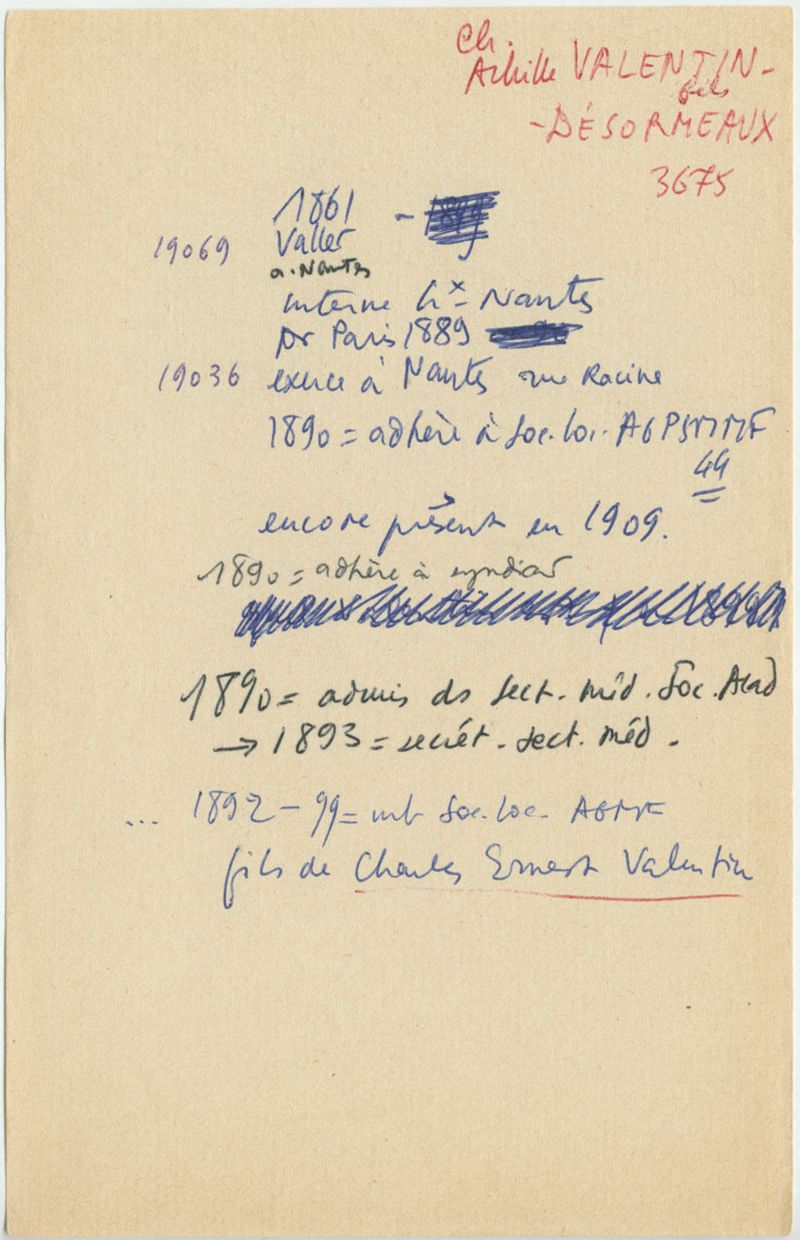 Ch.
Achille VALENTIN-
fils
-DÉSORMEAUX
3675
1861 -
19069 Vallet
a. Nantes
interne hx = Nantes
Dr Paris 1889
19036 exerce à Nantes rue Racine
1890 = adhère à Soc. loc. AGPSMMF
44
encore présent en 1909.
1890 = adhère à syndicat
1890 = admis ds sect. méd. Soc. Acad
→ 1893 = secrét. sect. méd.
... 1892 - 99 = mb Soc. loc. AGMF
fils de Charles Ernest Valentin